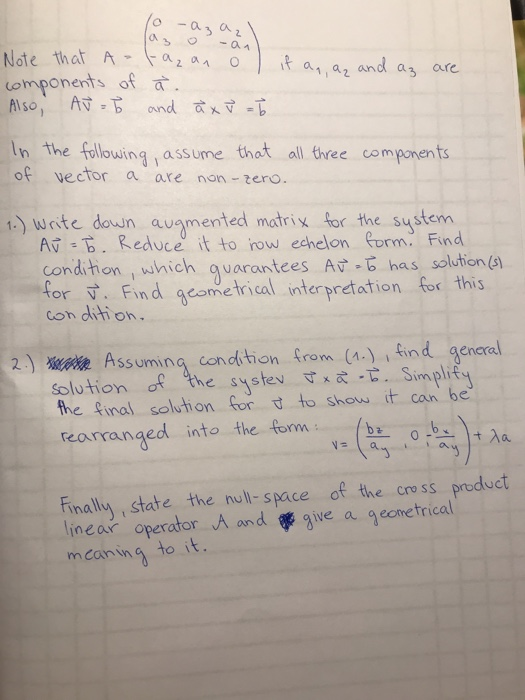 Note that A = (0 -a₃ a₂
a₃ 0 -a₁
-a₂ a₁ 0) if a₁, a₂ and a₃ are
components of a⃗.
Also, Av⃗ = b⃗ and a⃗ x v⃗ = b⃗
In the following, assume that all three components
of vector a are non-zero.
1.) Write down augmented matrix for the system
Av⃗ = b⃗. Reduce it to row echelon form. Find
condition, which guarantees Av⃗ = b⃗ has solution(s)
for v⃗. Find geometrical interpretation for this
condition.
2.) Assuming condition from (1.), find general
solution of the systev v⃗ x a⃗ = b⃗. Simplify
the final solution for v⃗ to show it can be
rearranged into the form: v = (bz/ay, 0, -bx/ay) + λa
Finally, state the null-space of the cross product
linear operator A and give a geometrical
meaning to it.